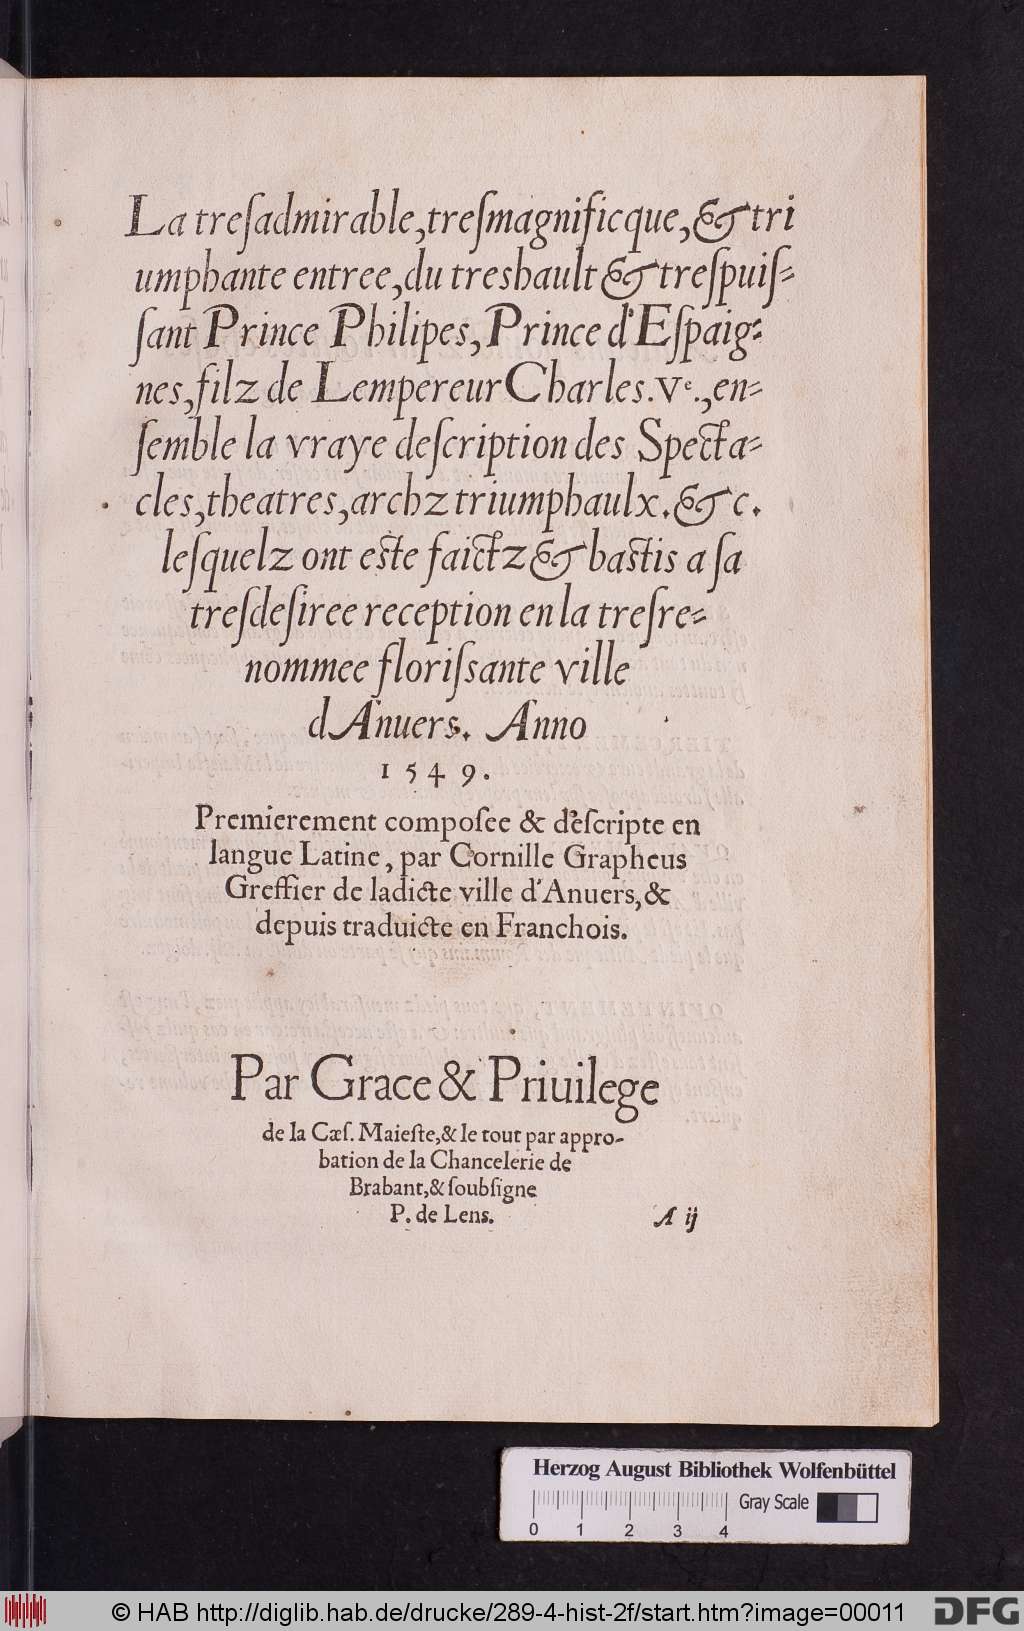 La treſadmirable,treſmagnificque,& tri
umphante entree,du treshault & treſpuiſ-
ſant Prince Philipes,Prince d'Eſpaig-
nes,filz de Lempereur Charles.vᵉ.,en-
ſemble la vraye deſcription des Specta-
cles,theatres,archz triumphaulx.&c.
leſquelz ont eſte faictz & baſtis a ſa
treſdeſiree reception en la treſre-
nommee floriſsante ville
d'Anuers. Anno
1549.
Premierement compoſee & deſcripte en
langue Latine, par Cornille Grapheus
Greffier de ladicte ville d'Anuers,&
depuis traduicte en Franchois.
Par Grace & Priuilege
de la Cæſ. Maieſte,& le tout par appro-
bation de la Chancelerie de
Brabant,& ſoubſigne
P. de Lens.
A ij
Herzog August Bibliothek Wolfenbüttel
Gray Scale
0 1 2 3 4
© HAB http://diglib.hab.de/drucke/289-4-hist-2f/start.htm?image=00011
DFG